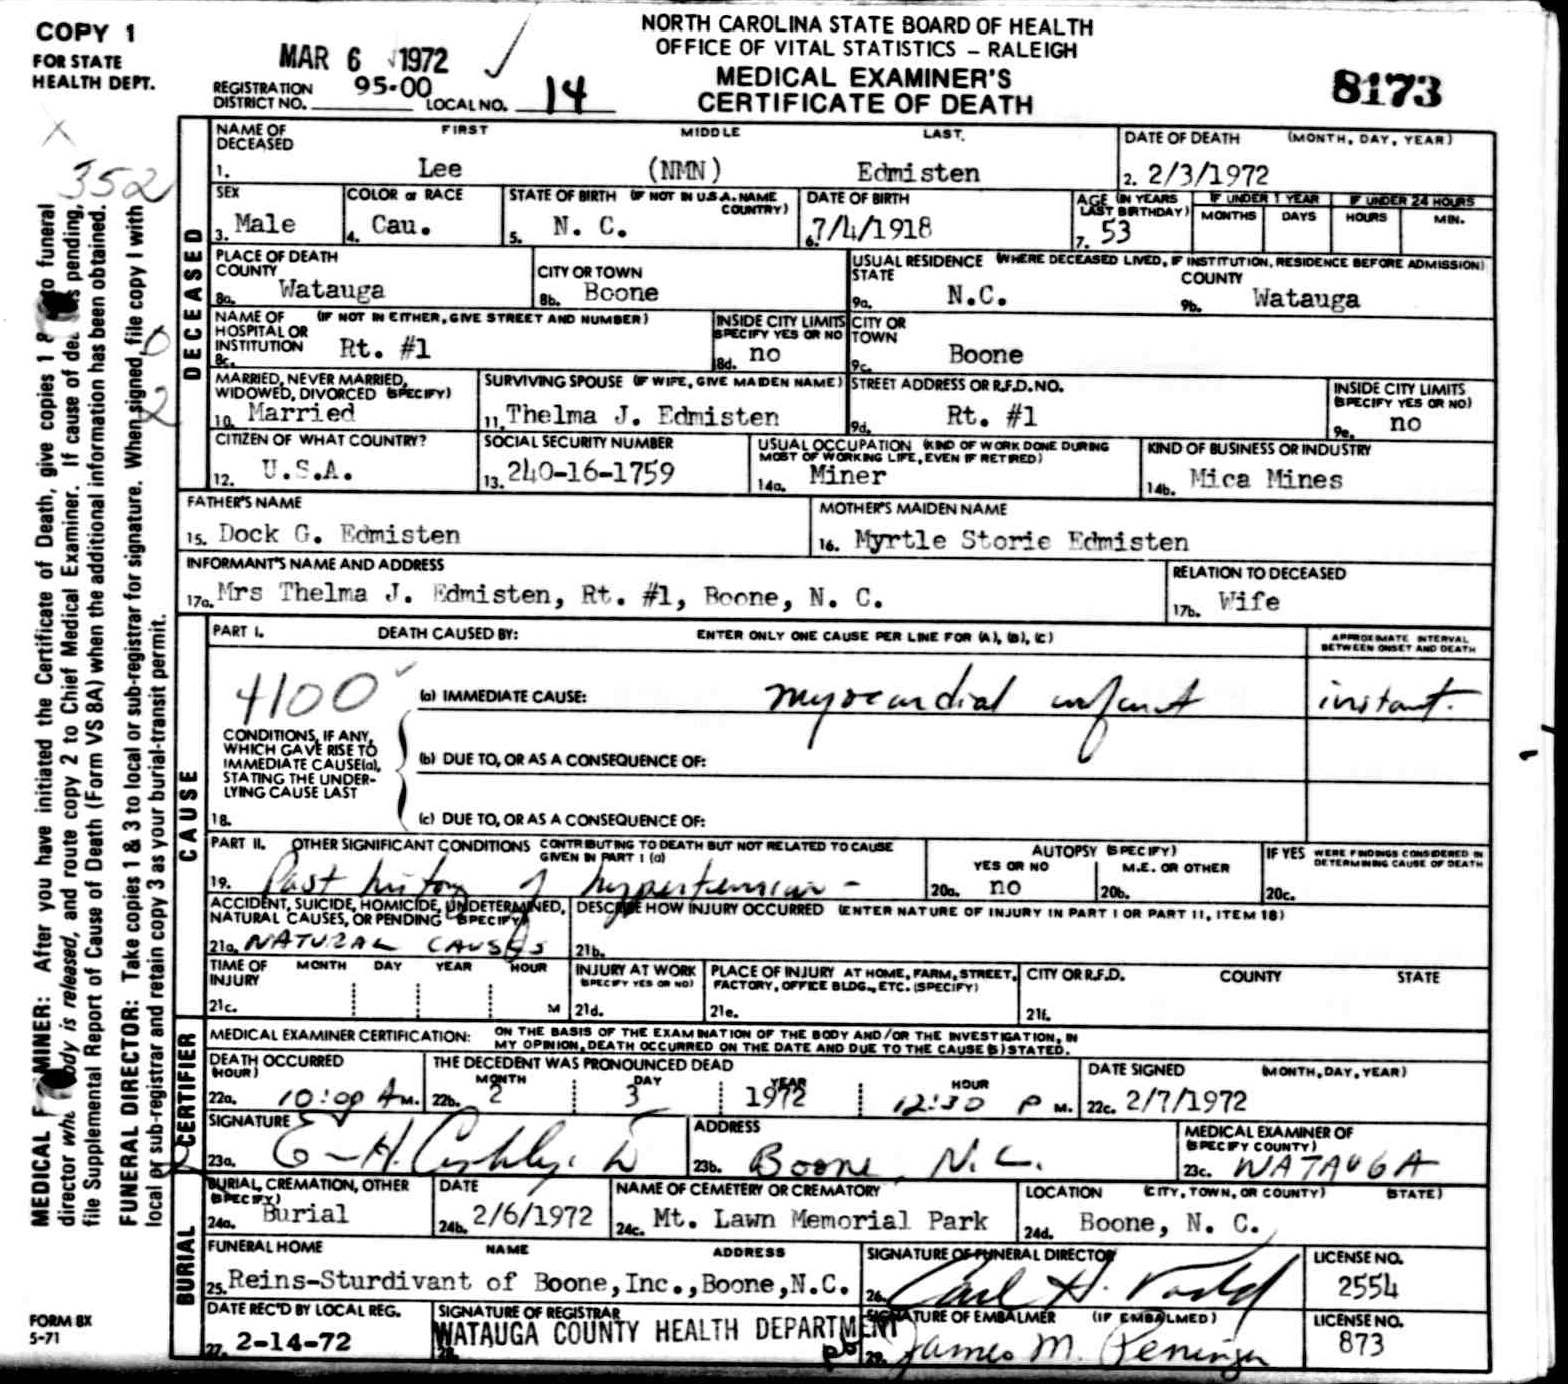 COPY 1
FOR STATE
HEALTH DEPT.
MAR 6 1972
NORTH CAROLINA STATE BOARD OF HEALTH
OFFICE OF VITAL STATISTICS – RALEIGH
MEDICAL EXAMINER'S
CERTIFICATE OF DEATH
8173
REGISTRATION DISTRICT NO. 95-00 LOCAL NO. 14
352
MEDICAL MINER: After you have initiated the Certificate of Death, give copies 1 & to funeral
director body is released, and route copy 2 to Chief Medical Examiner. If cause of pending,
file Supplemental Report of Cause of Death (Form VS 8A) when the additional information has been obtained.
FUNERAL DIRECTOR: Take copies 1 & 3 to local or sub-registrar for signature. When signed, file copy 1 with
local or sub-registrar and retain copy 3 as your burial-transit permit.
DECEASED
NAME OF DECEASED FIRST MIDDLE LAST DATE OF DEATH (MONTH, DAY, YEAR)
1. Lee (NMN) Edmisten 2. 2/3/1972
SEX COLOR or RACE STATE OF BIRTH (IF NOT IN U.S.A. NAME COUNTRY) DATE OF BIRTH AGE (IN YEARS LAST BIRTHDAY) IF UNDER 1 YEAR IF UNDER 24 HOURS
MONTHS DAYS HOURS MIN.
3. Male 4. Cau. 5. N. C. 6. 7/4/1918 7. 53
PLACE OF DEATH COUNTY CITY OR TOWN USUAL RESIDENCE (WHERE DECEASED LIVED, IF INSTITUTION, RESIDENCE BEFORE ADMISSION) STATE COUNTY
8a. Watauga 8b. Boone 9a. N.C. 9b. Watauga
NAME OF HOSPITAL OR INSTITUTION (IF NOT IN EITHER, GIVE STREET AND NUMBER) INSIDE CITY LIMITS SPECIFY YES OR NO CITY OR TOWN
8c. Rt. #1 8d. no 9c. Boone
MARRIED, NEVER MARRIED, WIDOWED, DIVORCED (SPECIFY) SURVIVING SPOUSE (IF WIFE, GIVE MAIDEN NAME) STREET ADDRESS OR R.F.D. NO. INSIDE CITY LIMITS (SPECIFY YES OR NO)
10. Married 11. Thelma J. Edmisten 9d. Rt. #1 9e. no
CITIZEN OF WHAT COUNTRY? SOCIAL SECURITY NUMBER USUAL OCCUPATION (KIND OF WORK DONE DURING MOST OF WORKING LIFE, EVEN IF RETIRED) KIND OF BUSINESS OR INDUSTRY
12. U.S.A. 13. 240-16-1759 14a. Miner 14b. Mica Mines
FATHER'S NAME MOTHER'S MAIDEN NAME
15. Dock G. Edmisten 16. Myrtle Storie Edmisten
INFORMANT'S NAME AND ADDRESS RELATION TO DECEASED
17a. Mrs Thelma J. Edmisten, Rt. #1, Boone, N. C. 17b. Wife
CAUSE
PART I. DEATH CAUSED BY: ENTER ONLY ONE CAUSE PER LINE FOR (A), (B), (C) APPROXIMATE INTERVAL BETWEEN ONSET AND DEATH
4100
(a) IMMEDIATE CAUSE: myocardial infarct instant.
CONDITIONS, IF ANY, WHICH GAVE RISE TO IMMEDIATE CAUSE(a), STATING THE UNDER-LYING CAUSE LAST
(b) DUE TO, OR AS A CONSEQUENCE OF:
18. (c) DUE TO, OR AS A CONSEQUENCE OF:
PART II. OTHER SIGNIFICANT CONDITIONS CONTRIBUTING TO DEATH BUT NOT RELATED TO CAUSE GIVEN IN PART I (a) AUTOPSY (SPECIFY) YES OR NO M.E. OR OTHER IF YES WERE FINDINGS CONSIDERED IN DETERMINING CAUSE OF DEATH
19. Past history of hypertension - 20a. no 20b. 20c.
ACCIDENT, SUICIDE, HOMICIDE, UNDETERMINED, NATURAL CAUSES, OR PENDING (SPECIFY) DESCRIBE HOW INJURY OCCURRED (ENTER NATURE OF INJURY IN PART I OR PART II, ITEM 18)
21a. NATURAL CAUSES 21b.
TIME OF INJURY MONTH DAY YEAR HOUR INJURY AT WORK (SPECIFY YES OR NO) PLACE OF INJURY AT HOME, FARM, STREET, FACTORY, OFFICE BLDG., ETC. (SPECIFY) CITY OR R.F.D. COUNTY STATE
21c. M 21d. 21e. 21f.
CERTIFIER
MEDICAL EXAMINER CERTIFICATION: ON THE BASIS OF THE EXAMINATION OF THE BODY AND/OR THE INVESTIGATION, IN MY OPINION, DEATH OCCURRED ON THE DATE AND DUE TO THE CAUSE(S) STATED.
DEATH OCCURRED (HOUR) THE DECEDENT WAS PRONOUNCED DEAD MONTH DAY YEAR HOUR DATE SIGNED (MONTH, DAY, YEAR)
22a. 10:00 A M. 22b. 2 3 1972 12:30 P M. 22c. 2/7/1972
SIGNATURE ADDRESS MEDICAL EXAMINER OF (SPECIFY COUNTY)
23a. 23b. Boone N.C. 23c. WATAUGA
BURIAL
BURIAL, CREMATION, OTHER (SPECIFY) DATE NAME OF CEMETERY OR CREMATORY LOCATION (CITY, TOWN, OR COUNTY) (STATE)
24a. Burial 24b. 2/6/1972 24c. Mt. Lawn Memorial Park 24d. Boone, N. C.
FUNERAL HOME NAME ADDRESS SIGNATURE OF FUNERAL DIRECTOR LICENSE NO.
25. Reins-Sturdivant of Boone, Inc., Boone, N.C. 26. Carl H. Todd 2554
DATE REC'D BY LOCAL REG. SIGNATURE OF REGISTRAR SIGNATURE OF EMBALMER (IF EMBALMED) LICENSE NO.
27. 2-14-72 28. WATAUGA COUNTY HEALTH DEPARTMENT 29. James M. 873
FORM 8X
5-71